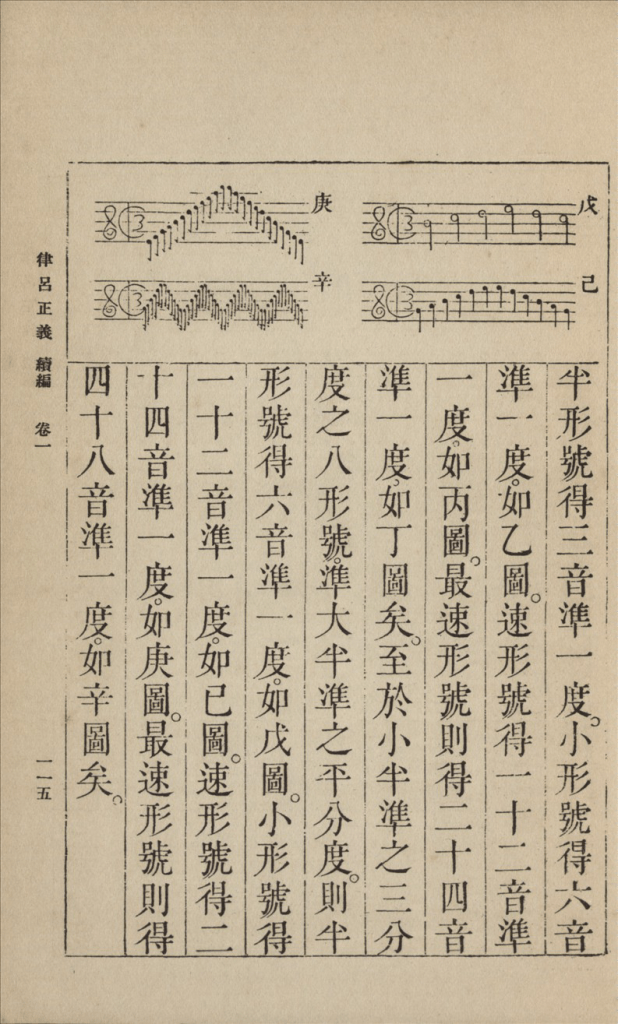 戊
己
庚
辛
半形號得三音準一度。小形號得六音
準一度。如乙圖。速形號得一十二音準
一度。如丙圖。最速形號則得二十四音
準一度。如丁圖矣。至於小半準之三分
度之八形號。準大半準之平分度。則半
形號得六音準一度。如戊圖。小形號得
一十二音準一度。如已圖。速形號得二
十四音準一度。如庚圖。最速形號則得
四十八音準一度。如辛圖矣。
律呂正義 續編 卷一
一一五